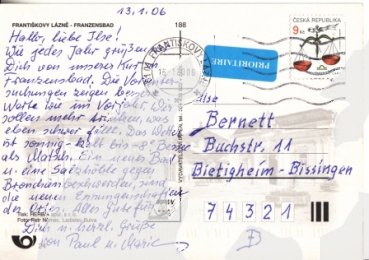 13.1.06
FRANTIŠKOVY LÁZNĚ - FRANZENSBAD
188
Hallo, liebe Ilse!
Wie jedes Jahr grüßen
Dich von unserer Kur in
Franzensbad. Die Vorunter-
suchungen zeigen bessere
Werte wie im Vorjahr. Wir
sollen mehr trinken, was
eben schwer fällt. Das Wetter
ist sonnig-kalt bis -8°
als Matsch. Ein neues Bad
u. eine Salzhöhle gegen
Bronchien sind
die neuen Errungenschaften
des Ortes. Alles Gute für
Dich u. herzl. Grüße
von Paul u. Marie
PRIORITAIRE
ČESKÁ REPUBLIKA
9 Kč
Ilse
Bernett
Buchstr. 11
Bietigheim-Bissingen
74321
D